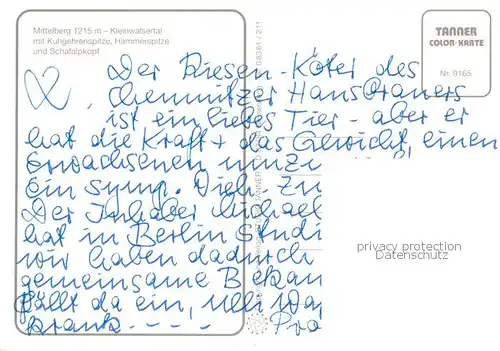 Mittelberg 1215 m – Kleinwalsertal
mit Kuhgehrenspitze, Hammerspitze
und Schafalpkopf
TANNER
COLOR-KARTE
Nr. 9165
08361 / 211
Der Riesen-Köter des
Chemnitzer
ist ein liebes Tier - aber er
hat die Kraft + das Gewicht, einen
Erwachsenen
ein symp. Vieh. Zu
Der Inhaber Michael
hat in Berlin Studi
wir haben dadurch
gemeinsame Bekan
fällt da ein,
krank - - - - Pro
privacy protection
Datenschutz